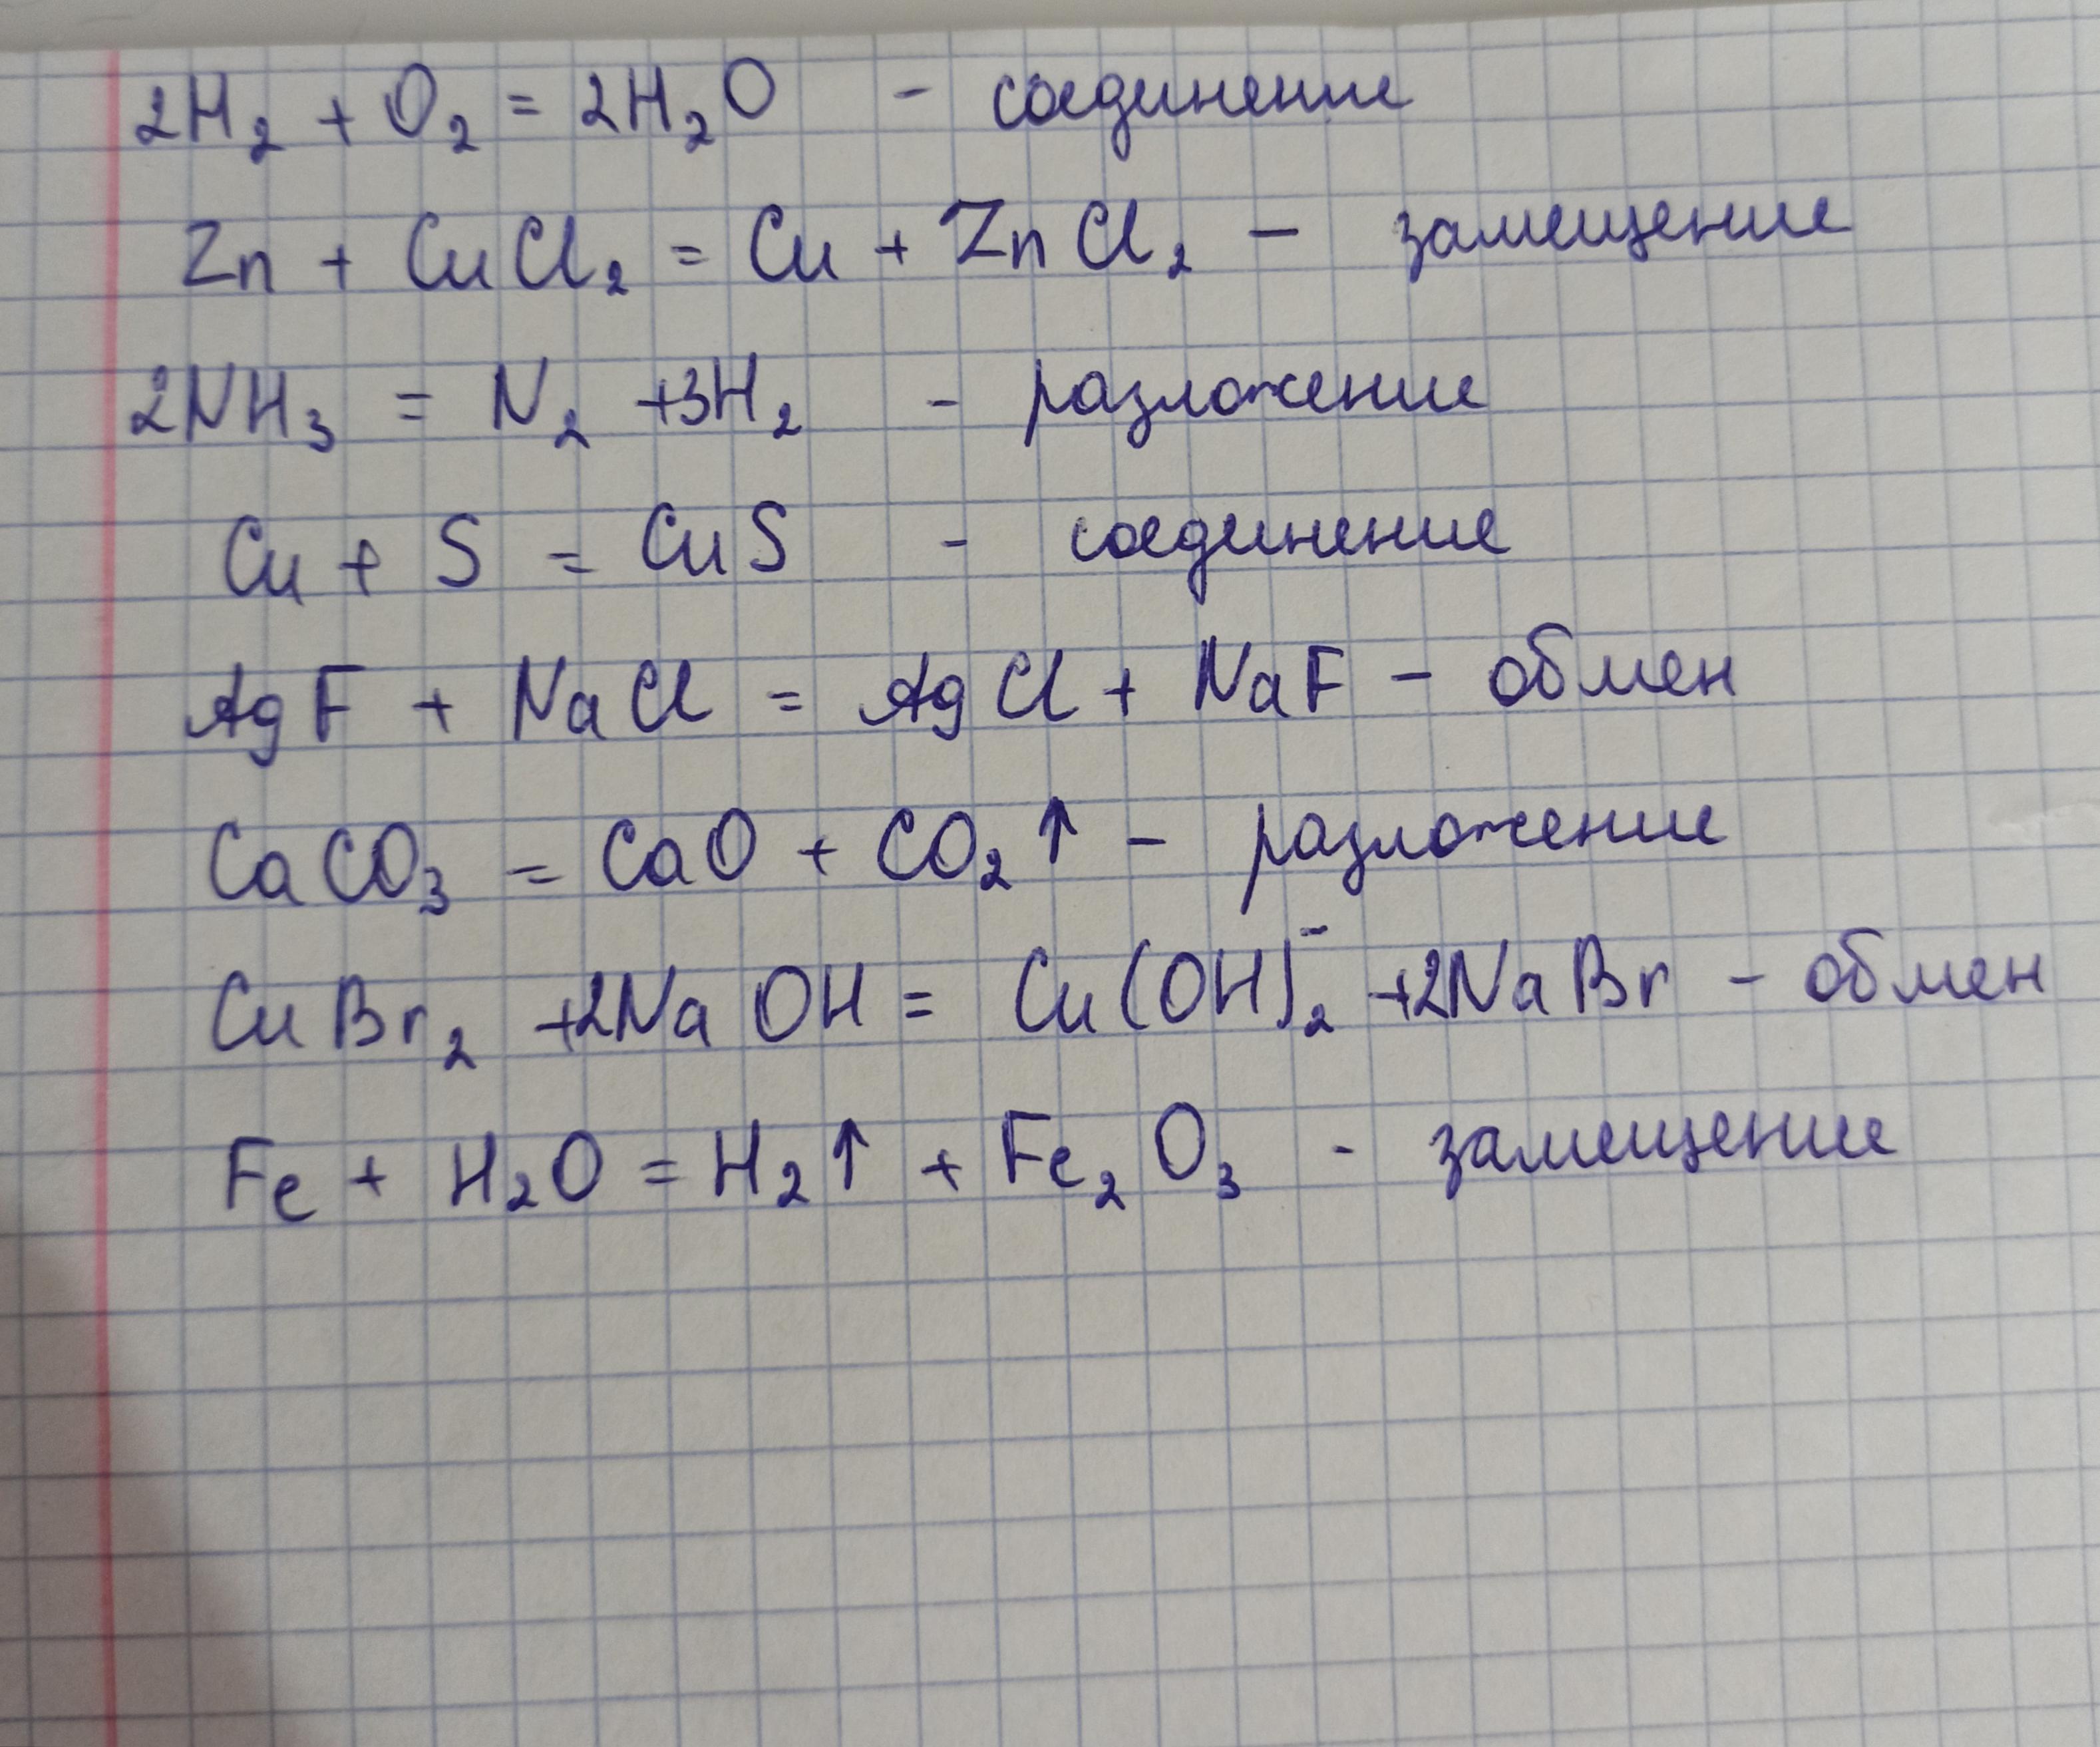 2H₂ + O₂ = 2H₂O - соединение
Zn + CuCl₂ = Cu + ZnCl₂ - замещение
2NH₃ = N₂ +3H₂ - разложение
Cu + S = CuS - соединение
AgF + NaCl = AgCl + NaF - обмен
CaCO₃ = CaO + CO₂↑ - разложение
CuBr₂ +2NaOH = Cu(OH)₂⁻ +2NaBr - обмен
Fe + H₂O = H₂↑ + Fe₂O₃ - замещение